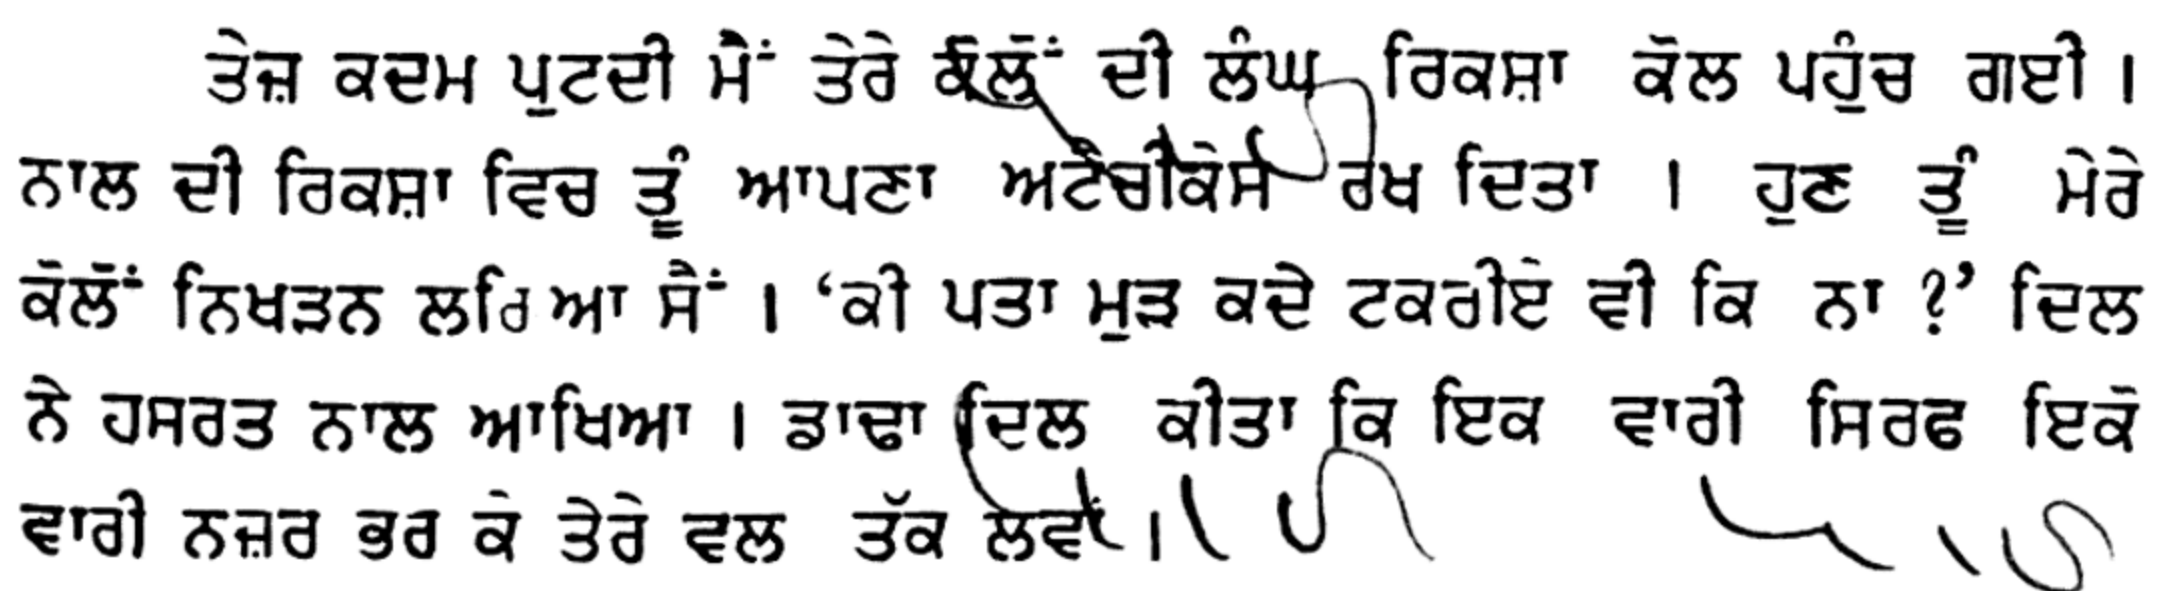 ਤੇਜ਼ ਕਦਮ ਪੁਟਦੀ ਮੈਂ ਤੇਰੇ ਕੋਲੋਂ ਦੀ ਲੰਘ ਰਿਕਸ਼ਾ ਕੋਲ ਪਹੁੰਚ ਗਈ ।
ਨਾਲ ਦੀ ਰਿਕਸ਼ਾ ਵਿਚ ਤੂੰ ਆਪਣਾ ਅਟੈਚੀਕੇਸ ਰਖ ਦਿਤਾ । ਹੁਣ ਤੂੰ ਮੇਰੇ
ਕੋਲੋਂ ਨਿਖੜਨ ਲਗਿਆ ਸੈਂ । ‘ਕੀ ਪਤਾ ਮੁੜ ਕਦੇ ਟਕਰੀਏ ਵੀ ਕਿ ਨਾ ?’ ਦਿਲ
ਨੇ ਹਸਰਤ ਨਾਲ ਆਖਿਆ । ਡਾਢਾ ਦਿਲ ਕੀਤਾ ਕਿ ਇਕ ਵਾਰੀ ਸਿਰਫ ਇਕੋ
ਵਾਰੀ ਨਜ਼ਰ ਭਰ ਕੇ ਤੇਰੇ ਵਲ ਤੱਕ ਲਵਾਂ ।